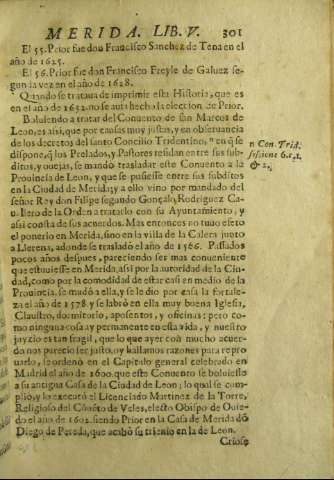 MERIDA. LIB. V. 301
El 55. Prior fue don Francisco Sanchez de Tena en el
año de 1625.
El 56. Prior fue don Francisco Freyle de Galuez se-
gunda vez en el año de 1628.
Quando se trataua de imprimir esta Historia, que es
en el año de 1632. no se auia hecho la eleccion de Prior.
Boluiendo a tratar del Conuento de san Marcos de
Leon, es assi, que por causas muy justas, y en obseruancia
de los decretos del santo Concilio Tridentino, n en q̃ se
dispone, q̃ los Prelados, y Pastores residan entre sus sub-
ditos, y ouejas, se mandò trasladar este Conuento a la
Prouincia de Leon, y que se pusiesse entre sus subditos
en la Ciudad de Merida; y a ello vino por mandado del
señor Rey don Filipe segundo Gonçalo Rodriguez Ca-
uallero de la Orden a tratarlo con su Ayuntamiento, y
assi consta de sus acuerdos. Mas entonces no tuuo efeto
el ponerlo en Merida, sino en la villa de la Calera junto
a Llerena, adonde se trasladò el año de 1566. Passados
pocos años despues, pareciendo ser mas conueniente
que estuuiesse en Merida, assi por la autoridad de la Ciu-
dad, como por la comodidad de estar casi en medio de la
Prouincia, se mudò a ella, y se le dio por casa la fortale-
za el año de 1578. y se labrò en ella muy buena Iglesia,
Claustro, dormitorio, aposentos, y oficinas: pero co-
mo ninguna cosa ay permanente en esta vida, y nuestro
juyzio es tan fragil, que lo que ayer con mucho acuer-
do nos parecio ser justo, oy hallamos razones para repro-
uarlo, se ordenò en el Capitulo general celebrado en
Madrid el año de 1600. que este Conuento se boluiesse
a su antigua Casa de la Ciudad de Leon; lo qual se com-
plio, y lo executò el Licenciado Martinez de la Torre,
Religioso del Cõuẽto de Veles, electo Obispo de Ouie-
do el año de 1602. siendo Prior en la Casa de Merida dõ
Diego de Pereda, que acabò su trienio en la de Leon.
n Con. Trid.
session 6. c. 1.
& 2.
Criose